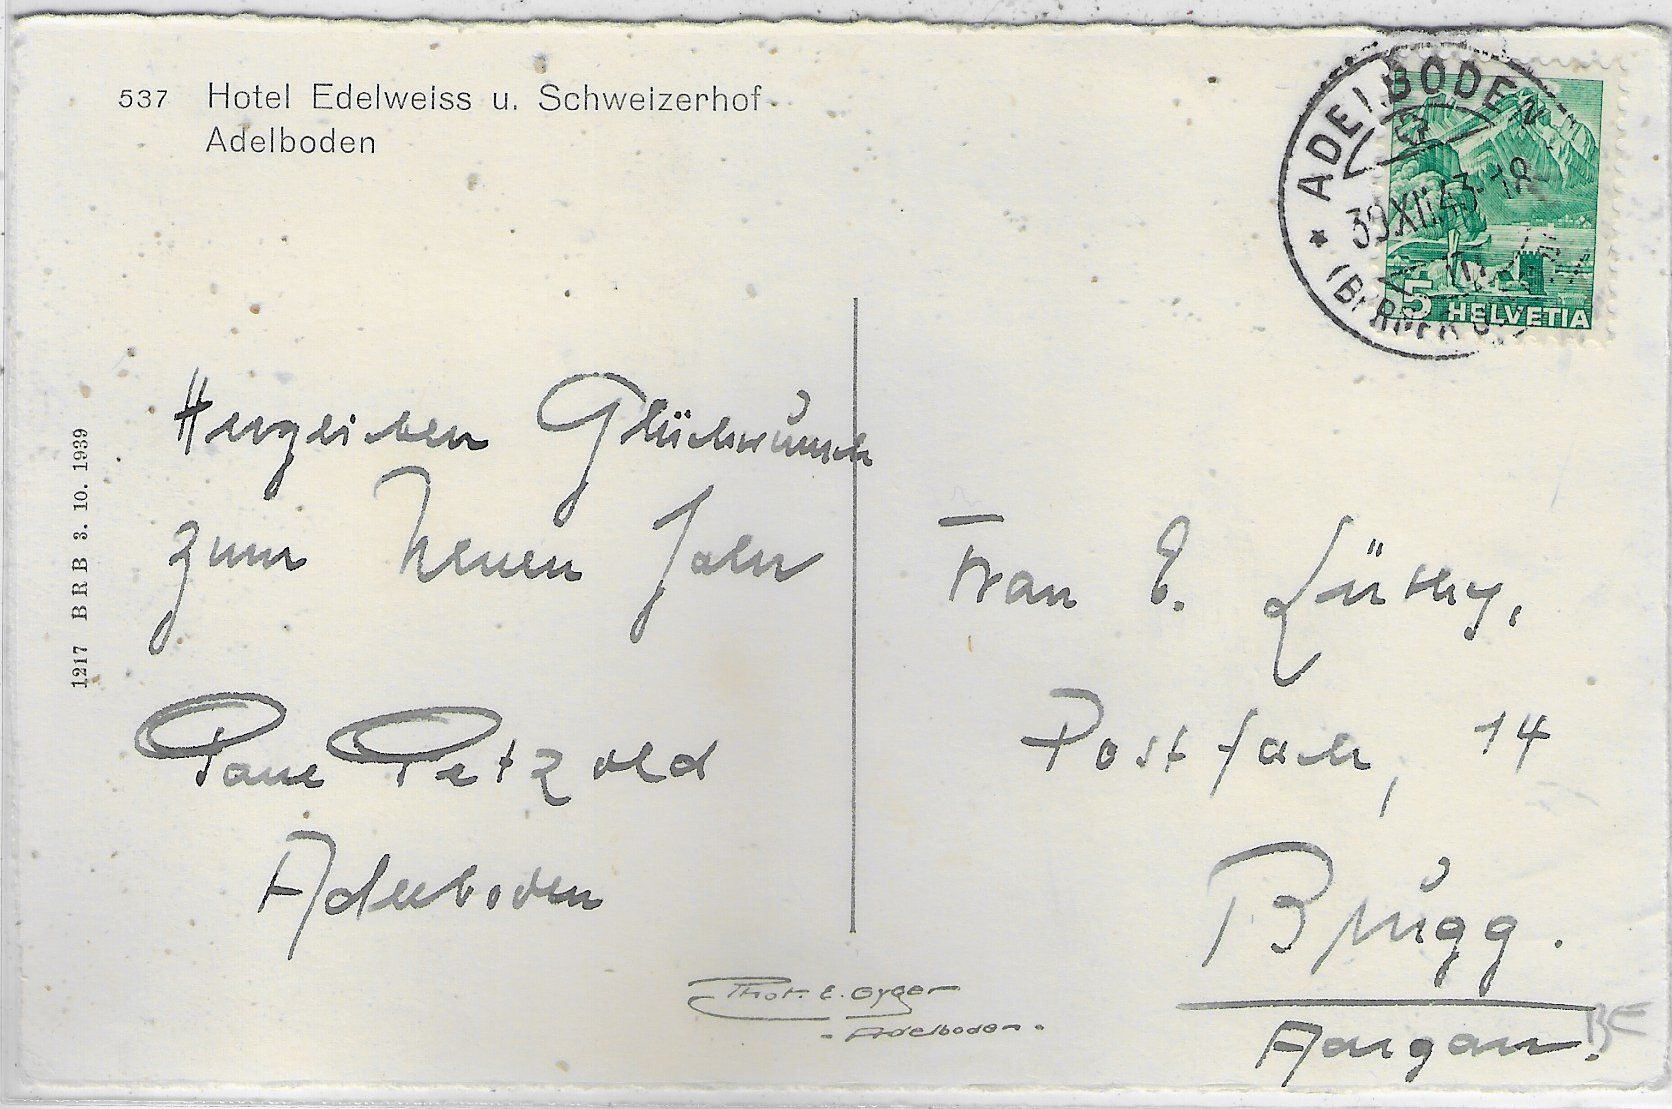 537 Hotel Edelweiss u. Schweizerhof
Adelboden
ADELBODEN
30.XII.43.18
(BERNER
5 HELVETIA
1217 BRB 3. 10. 1939
Herzlichen Glückwunsch
zum Neuen Jahr
Petzold
Adelboden
Frau E. Lüthy,
Postfach, 14
Brugg.
Aargau.
BE
Phot. E. Gyger
- Adelboden -